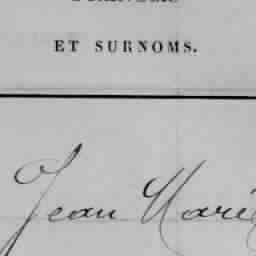 ET SURNOMS.
Jean Marie